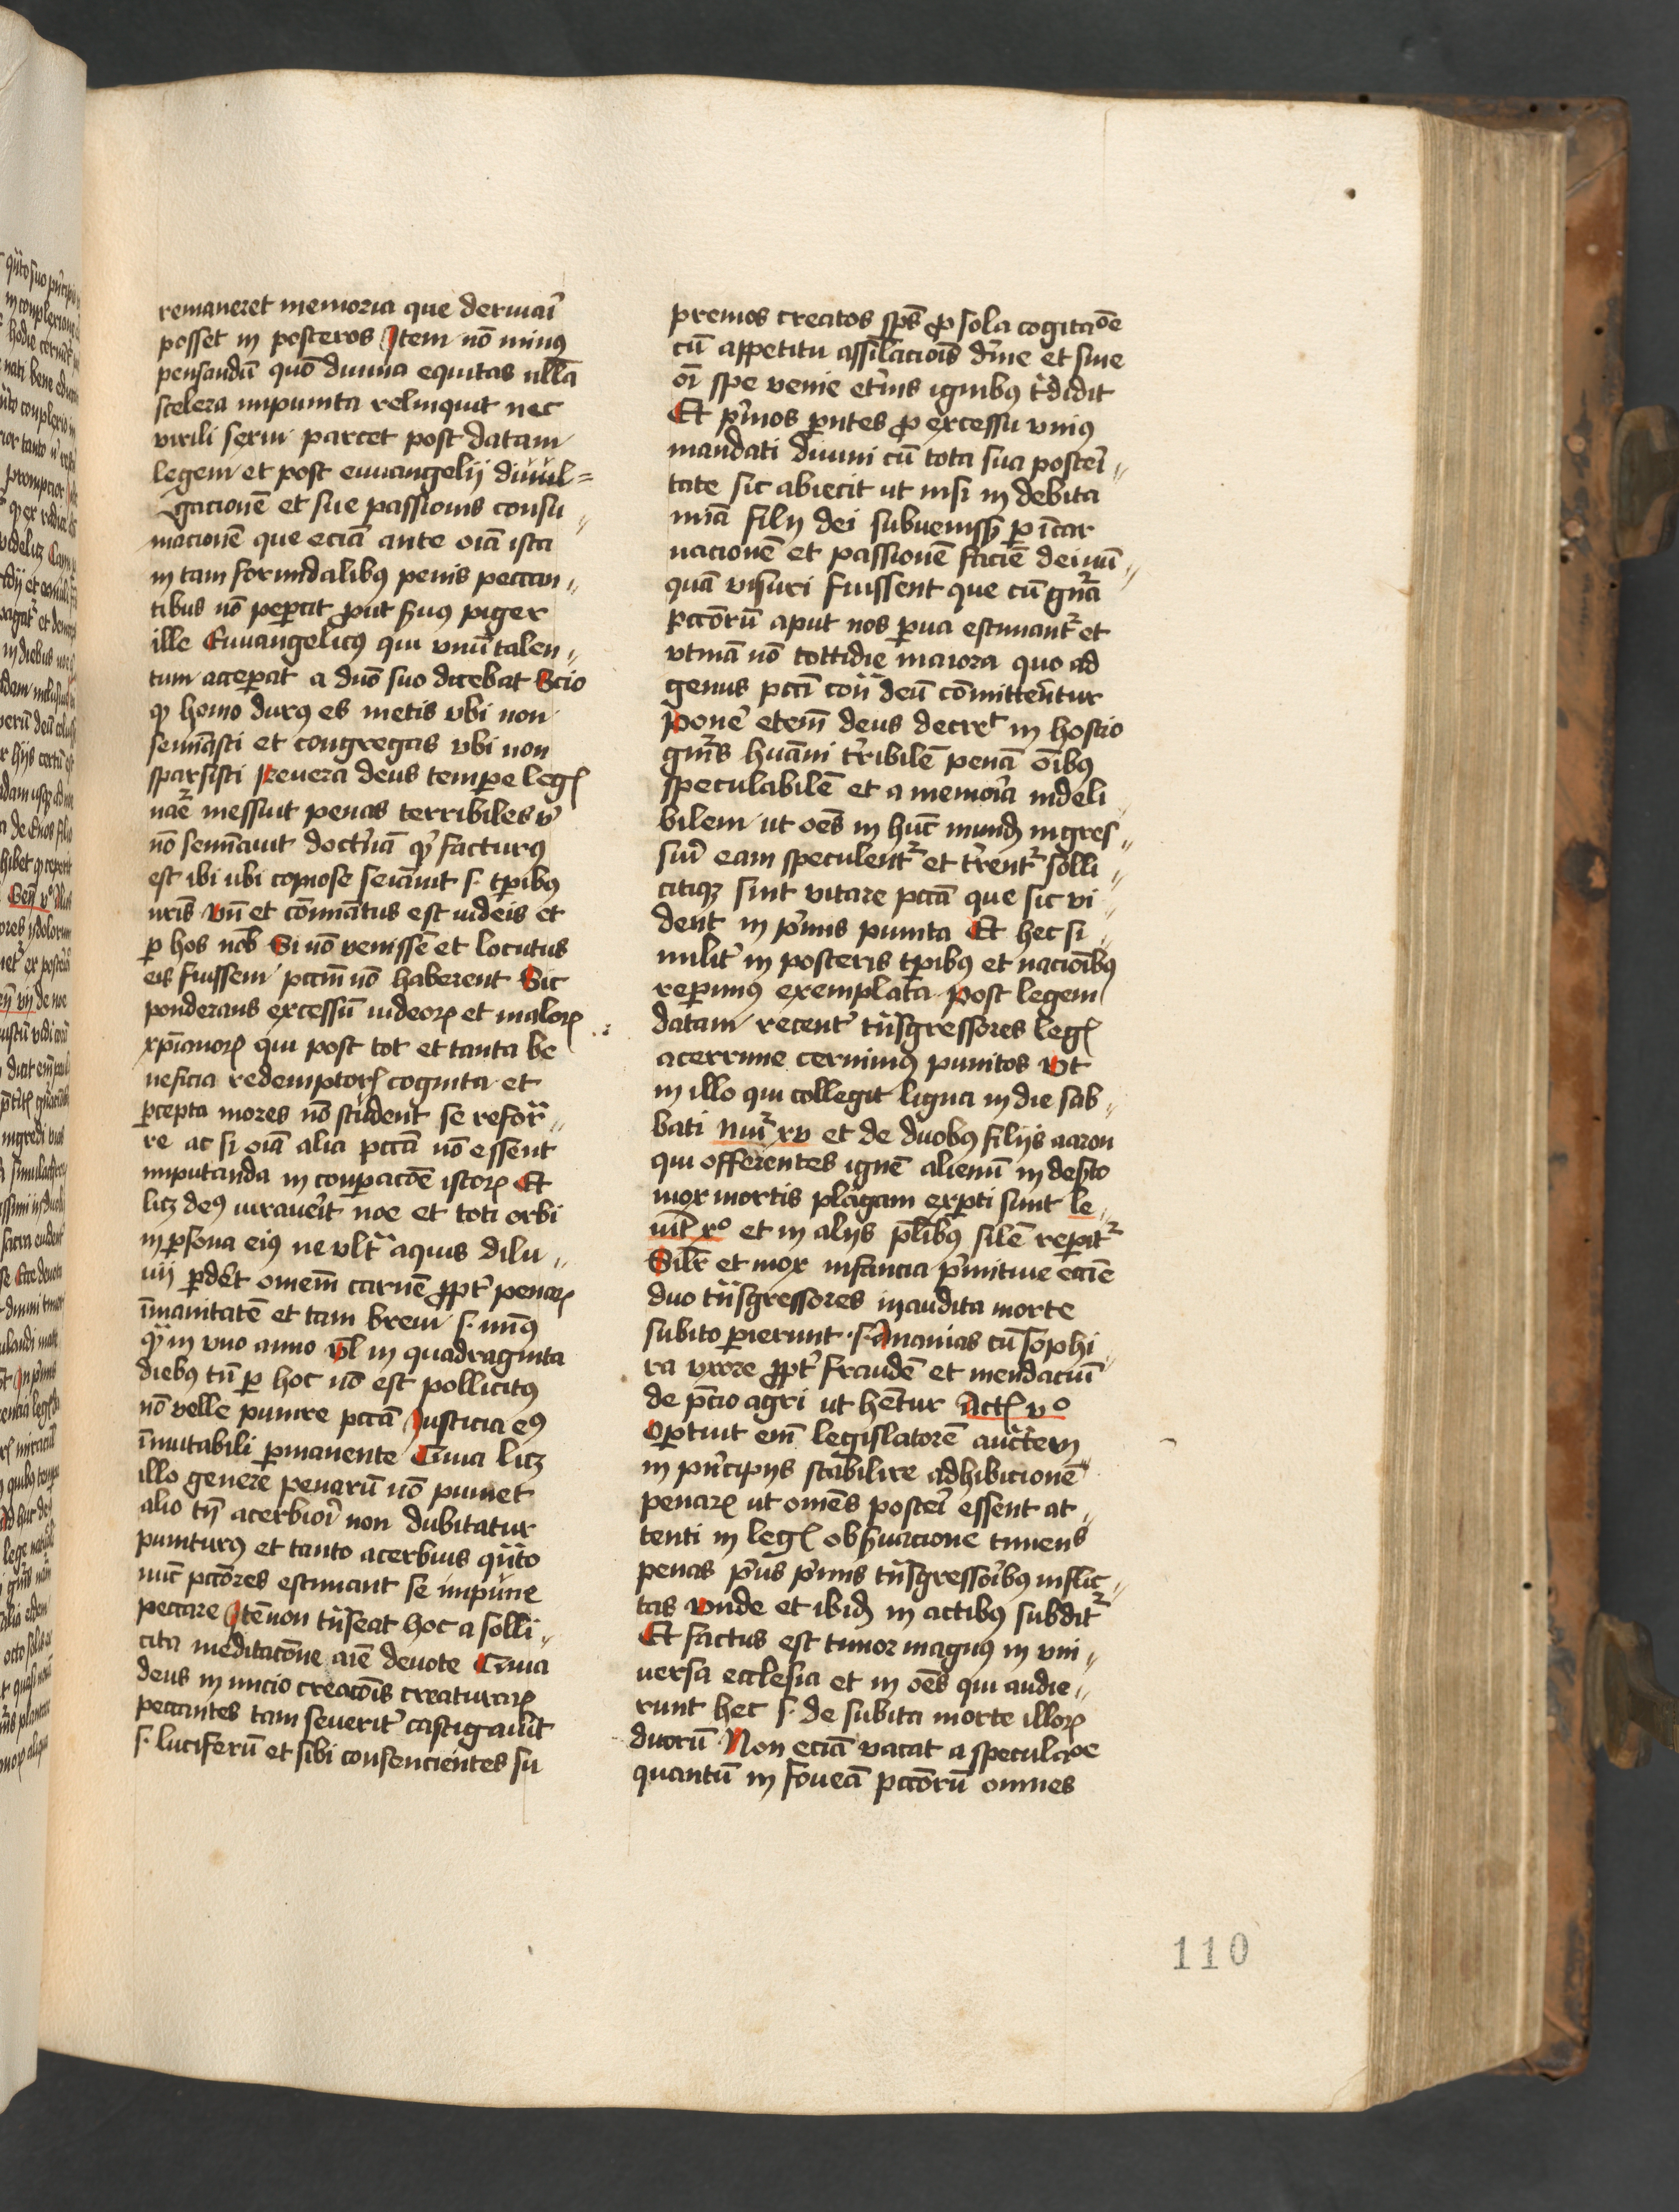 remaneret memoria que deriuari̅
posset in posteros Item no̅ minus
pensandu̅ quo̅ diuina equitas nlla̅
scelera impunita relinquit nec
virili sexui parcet post datam
legem et post euuangelij diuul=
gacione̅ et sue passionis consu„
macione̅ que ecia̅ ante oi̅a ista
in tam formidalibus penis peccan„
tibus no̅ peꝑcit ꝓut ẜuus piger
ille Euuangelicus qui vnu̅ talen„
tum acceperat a dn̅o suo dicebat Scio
ꝙ homo durus es metis vbi non
semi̅asti et congregas vbi non
sparsisti Reuera deus tempe legꝭ
nat̅e messuit penas terribiles vͥ
no̅ semi̅auit doctri̅a̅ ꝙ facturus
est ibi ubi copiose semi̅auit .s. tꝑibus
nr̅is Vn̅ et co̅mi̅atus est iudeis et
ꝑ hos nob̅ Si no̅ venisse̅ et locutus
eis fuissem pcc̅m no̅ haberent Sic
ponderans excessu̅ iudeoꝝ et maloꝝ
xp̅ianoꝝ qui post tot et tanta be
neficia redemptorꝭ cognita et
ꝑcepta mores no̅ student se refor̅a„
re ac si oi̅a alia pcc̅a no̅ essent
imputanda in co̅ꝑac̅oe istoꝝ Et
licꝫ deus iurauer̅it noe et toti orbi
in ꝑsona eius ne vlt̅ aquis dilu„
uij ꝑder̅et omne̅m carne̅ ꝓpt̅ penaꝝ
i̅manitate̅ et tam breui .s. min̅us
qͣ in vno anno vl̅ in quadraginta
diebus tn̅ ꝑ hoc no̅ est pollicitus
no̅ velle punire pcc̅a Iusticia eius
i̅mutabili ꝑmanente Quia licꝫ
illo genere penaru̅ no̅ puniet
alio tn̅ acerbior̅i non dubitatur
puniturus et tanto acerbius qua̅to
nu̅c pcc̅ores estimant se impune
peccare Ite̅ non tra̅seat hoc a solli„
cita meditac̅one ai̅e deuote Quia
deus in inicio creac̅ois creaturaꝝ
peccantes tam seuerit̅ castigauit
.s. luciferu̅ et sibi consencientes su
premos creatos sp̅s ꝓ sola cogitac̅oe
cu̅ appetitu assi̅lac̅iois di̅ne et sine
oi̅ spe venie et̅nis ignibus tͣdidit
Et pͥmos pn̅tes ꝓ excessu vnius
mandati diuini cu̅ tota sua posteri̅„
tate sic abiecit ut nisi in debita
mi̅a filij dei subuenissꝫ ꝑ i̅car
nacione̅ et passione̅ facie̅ dei nu̅„
qua̅ visuri fuissent que cu̅ gn̅a
pcc̅oru̅ aput nos ꝑua estimant̅ et
vtina̅ no̅ tottidie maiora quo ad
genus pcc̅i con̅ deu̅ co̅mittere̅ntur
Poner̅e etem̅ deus decreͭ in hostio
gn̅is hu̅ani t̅ribile̅ pena̅ oi̅bus
speculabile̅ et a memor̅ia indeli
bilem ut oe̅s in hu̅c mundꝫ ingres„
suri̅ eam speculent̅ et t̅rent̅ solli„
citiqꝫ sint vitare pcc̅a que sic vi„
dent in pͥmis punita Et hec si„
milit̅ in posteris tꝑibus et nacio̅ibus
reꝑimus exemplata Post legem
datam recent̅ tra̅sgressores legꝭ
acerrime cernimus punitos Vt
in illo qui collegit ligna in die sab„
bati Nu̅i xv et de duobus filijs aaron
qui offerentes igne̅ alienu̅ in deẜto
mox mortis plagam exꝑti sunt le„
uitꝭ xo et in alijs pl̅ibus sile̅ reꝑit̅
Silr̅ et mox infancia pͥmitiue ecc̅ie
duo tra̅sgressores inaudita morte
subito ꝑierunt .s. Ananias cu̅ sophi
ra vxore ꝓpt̅ fraude̅ et mendaciu̅
de pc̅io agri ut he̅tur Actꝭ vo
Oꝑtuit em̅ legislatore̅ aucte̅m
in pͥncipijs stabilire adhibicione̅
penaꝝ ut omne̅s poster̅i essent at„
tenti in legꝭ obẜuacione timens̅
penas pͥus pͥmis tra̅sgressor̅ibus inflic„
tas Vnde et ibidꝫ in actibus subdit̅
Et factus est timor magnus in vni„
uersa ecclesia et in oe̅s qui audie„
runt hec .s. de subita morte illoꝝ
duoru̅ Non ecia̅ vacat a speculac̅oe
quantu̅ in fouea̅ pcc̅oru̅ omnes
110